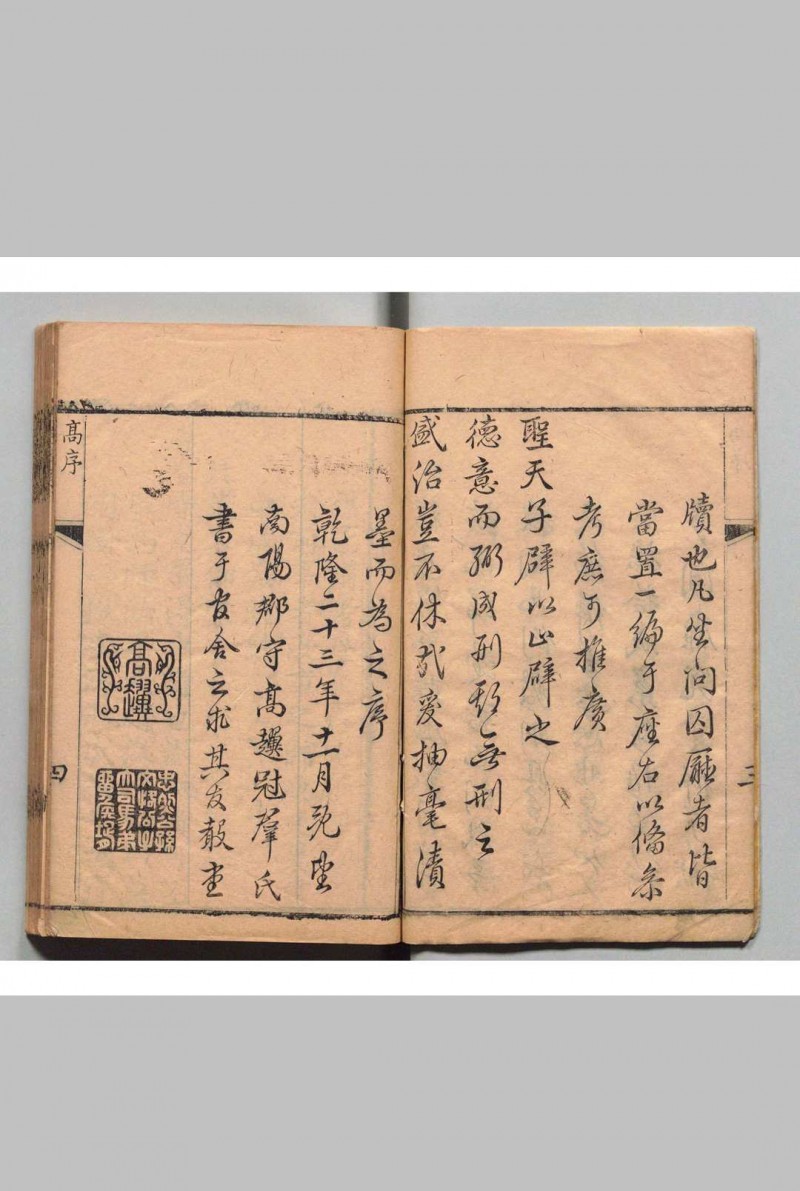 牘也凡坐問囚廳者皆
當置一編于座右以備条
考庶可推廣
聖天子辟以止辟之
德意而弼成刑期無刑之
盛治豈不休哉爰抽毫漬
墨而為之序
乾隆二十三年十一月既望
南陽郡守高𨇾冠羣氏
書于官舍之求其友敲堂
高序
三
四